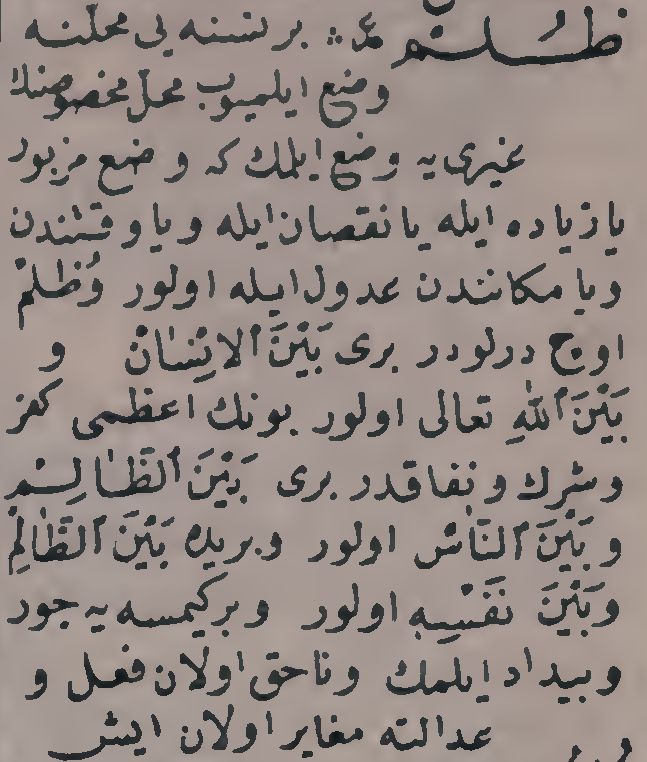 ظُلـم عـ ؞ برنسنه يى محلّنه
وضع ايلميوب محلّ مخصوصندن
غيرى يه وضع ايلمك كه وضع مزبور
يا زياده ايله يا نقصان ايله ويا وقتندن
ويا مكانندن عدول ايله اولور وُظُلمْ
اوج درلودر برى بَيْنَ الاِنسٰانْ و
بَيْنَ اللّٰهِ تعالى اولور بونك اعظمى كفر
وشرك ونفاقدر برى بَيْنَ الظّٰالِـم
وبَيْنَ النّٰاسْ اولور وبريده بَيْنَ الظّٰالِمْ
وبَيْنَ نَفْسِهِ اولور وبركيمسه يه جور
وبيداد ايلمك وناحق اولان فعل و
عدالته مغاير اولان ايش